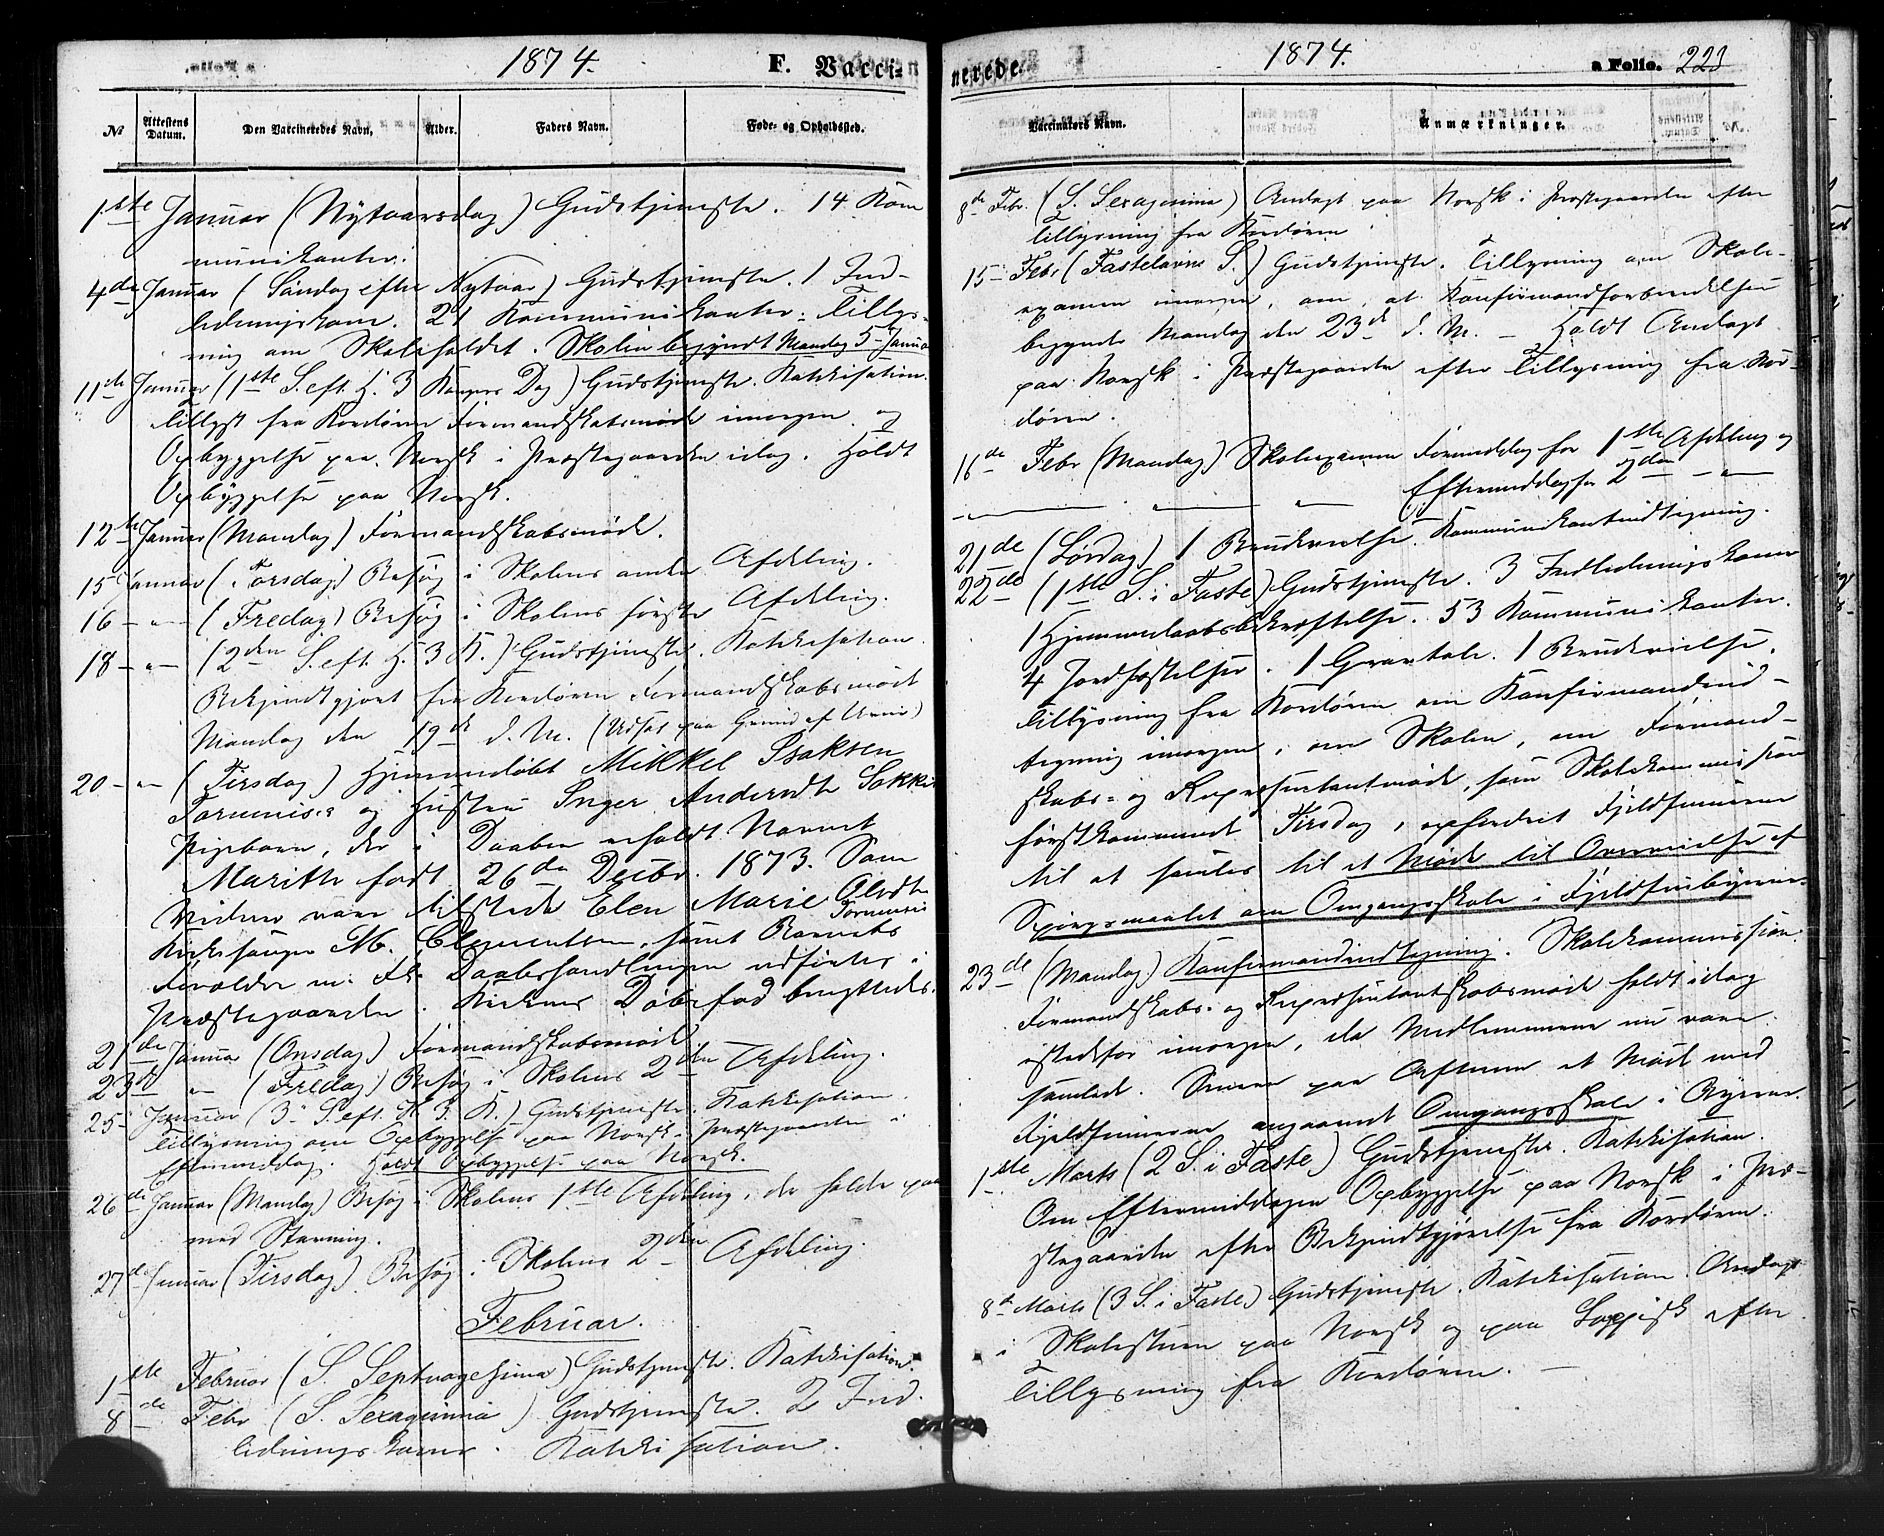 1874.
F. Vacci-
№
Attestens Datum.
Den Vaccineredes Navn.
Alder.
Faders Navn.
Føde- og Opholdssted.
1ste Januar (Nytaarsdag) Gudstjeneste. 14 Kom
munikanter.
4de Januar (Søndag efter Nytaar) Gudstjeneste. 1 Ind-
ledningskone. 21 Kommunikanter. Tillys-
ning om Skoleholdet. Skolen begyndt Mandag 5 Januar
11te Januar (1ste S. eft. H. 3 Kongers Dag) Gudstjeneste. Katekisation.
Tillyst fra Kordøren Formandskabsmøde imorgen og
Opbyggelse paa Norsk i Præstegaarden idag. Holdt
Opbyggelse paa Norsk.
12te Januar (Mandag) Formandskabsmøde.
15 Januar (Torsdag) Besøg i Skolens anden Afdeling.
16 — " — (Fredag) Besøg i Skolens første Afdeling.
18 — " — (2den S. eft. H. 3 K.) Gudstjeneste. Katekisation.
Bekjendtgjort fra Kordøren Formandskabsmøde
Mandag den 19de d. M. (Udsat paa Grund af Uveir)
20 — " — (Tirsdag) Hjemmedøbt Mikkel Isaksen
og Hustru Inger Andersdtr
Pigebarn, der i Daaben erholdt Navnet
Marith født 26de Decbr. 1873. Som
Vidner vare tilstede Elen Marie Olsdtr
Kirkesanger M. Clementsen, samt Barnets
Forældre m. Fl. Daabshandlingen udførtes i
Præstegaarden. Kirkens Døbefad benyttedes.
21de Januar (Onsdag) Formandskabsmøde
23de — " — (Fredag) Besøg i Skolens 2den Afdeling.
25 Januar (3. S. eft. H. 3. K.) Gudstjeneste. Katekisation.
Tillysning om Opbyggelse paa Norsk i Præstegaarden i
Eftermiddag. Holdt Opbyggelse paa Norsk.
26de Januar (Mandag) Besøg i Skolens 1ste Afdeling, der holdt paa
med Stavning.
27de Januar (Tirsdag) Besøg i Skolens 2den Afdeling.
Februar.
1ste Februar (S. Septuagesima) Gudstjeneste. Katekisation.
8de Febr (S. Sexagesima) Gudstjeneste. 2 Ind
ledningskoner. Katekisation.
nerede.
1874.
a Folio. 223
Vaccinators Navn.
Anmærkninger.
8de Febr. (S. Sexagesima) Andagt paa Norsk i Præstegaarden efter
Tillysning fra Kordøren.
15 Febr (Fastelavns S.) Gudstjeneste. Tillysning om Skole-
examen imorgen, om, at Konfirmandforberedelsen
begynder Mandag den 23de d. M. — Holdt Andagt
paa Norsk i Præstegaarden efter Tillysning fra Kor-
døren.
16de Febr (Mandag) Skoleexamen Formiddag for 1ste Afdeling og
— " — — " — — " — Eftermiddag for 2den — " —
21de (Lørdag) 1 Brudevielse. Kommunikantindtegning.
22de (1ste S. i Faste) Gudstjeneste. 3 Indledningskoner
1 Hjemmedaabsbekræftelse. 53 Kommunikanter.
4 Jordfæstelser. 1 Gravtale. 1 Brudevielse.
Tillysning fra Kordøren om Konfirmandind-
tegning imorgen, om Skolen, om Formand-
skabs- og Repræsentantmøde, som Skolekommission
førstkommende Tirsdag, opfordret Fjeldfinnerne
til at samles til et Møde til Overveielse af
Spørgsmaalet om Omgangsskole i Fjeldfinbyerne.
23de (Mandag) Konfirmandindtegning. Skolekommission.
Formandskabs- og Repræsentantskabsmøde holdt idag
istedetfor imorgen, da Medlemmerne nu vare
samlede. Senere paa Aftenen et Møde med
Fjeldfinnerne angaaende Omgangsskole i Byerne.
1ste Marts (2 S. i Faste) Gudstjeneste. Katekisation.
Om Eftermiddagen Opbyggelse paa Norsk i Præ-
stegaarden efter Bekjendtgjørelse fra Kordøren.
8de Marts (3 S. i Faste) Gudstjeneste. Katekisation. Andagt
i Skolestuen paa Norsk og paa Lappisk efter
Tillysning fra Kordøren. —